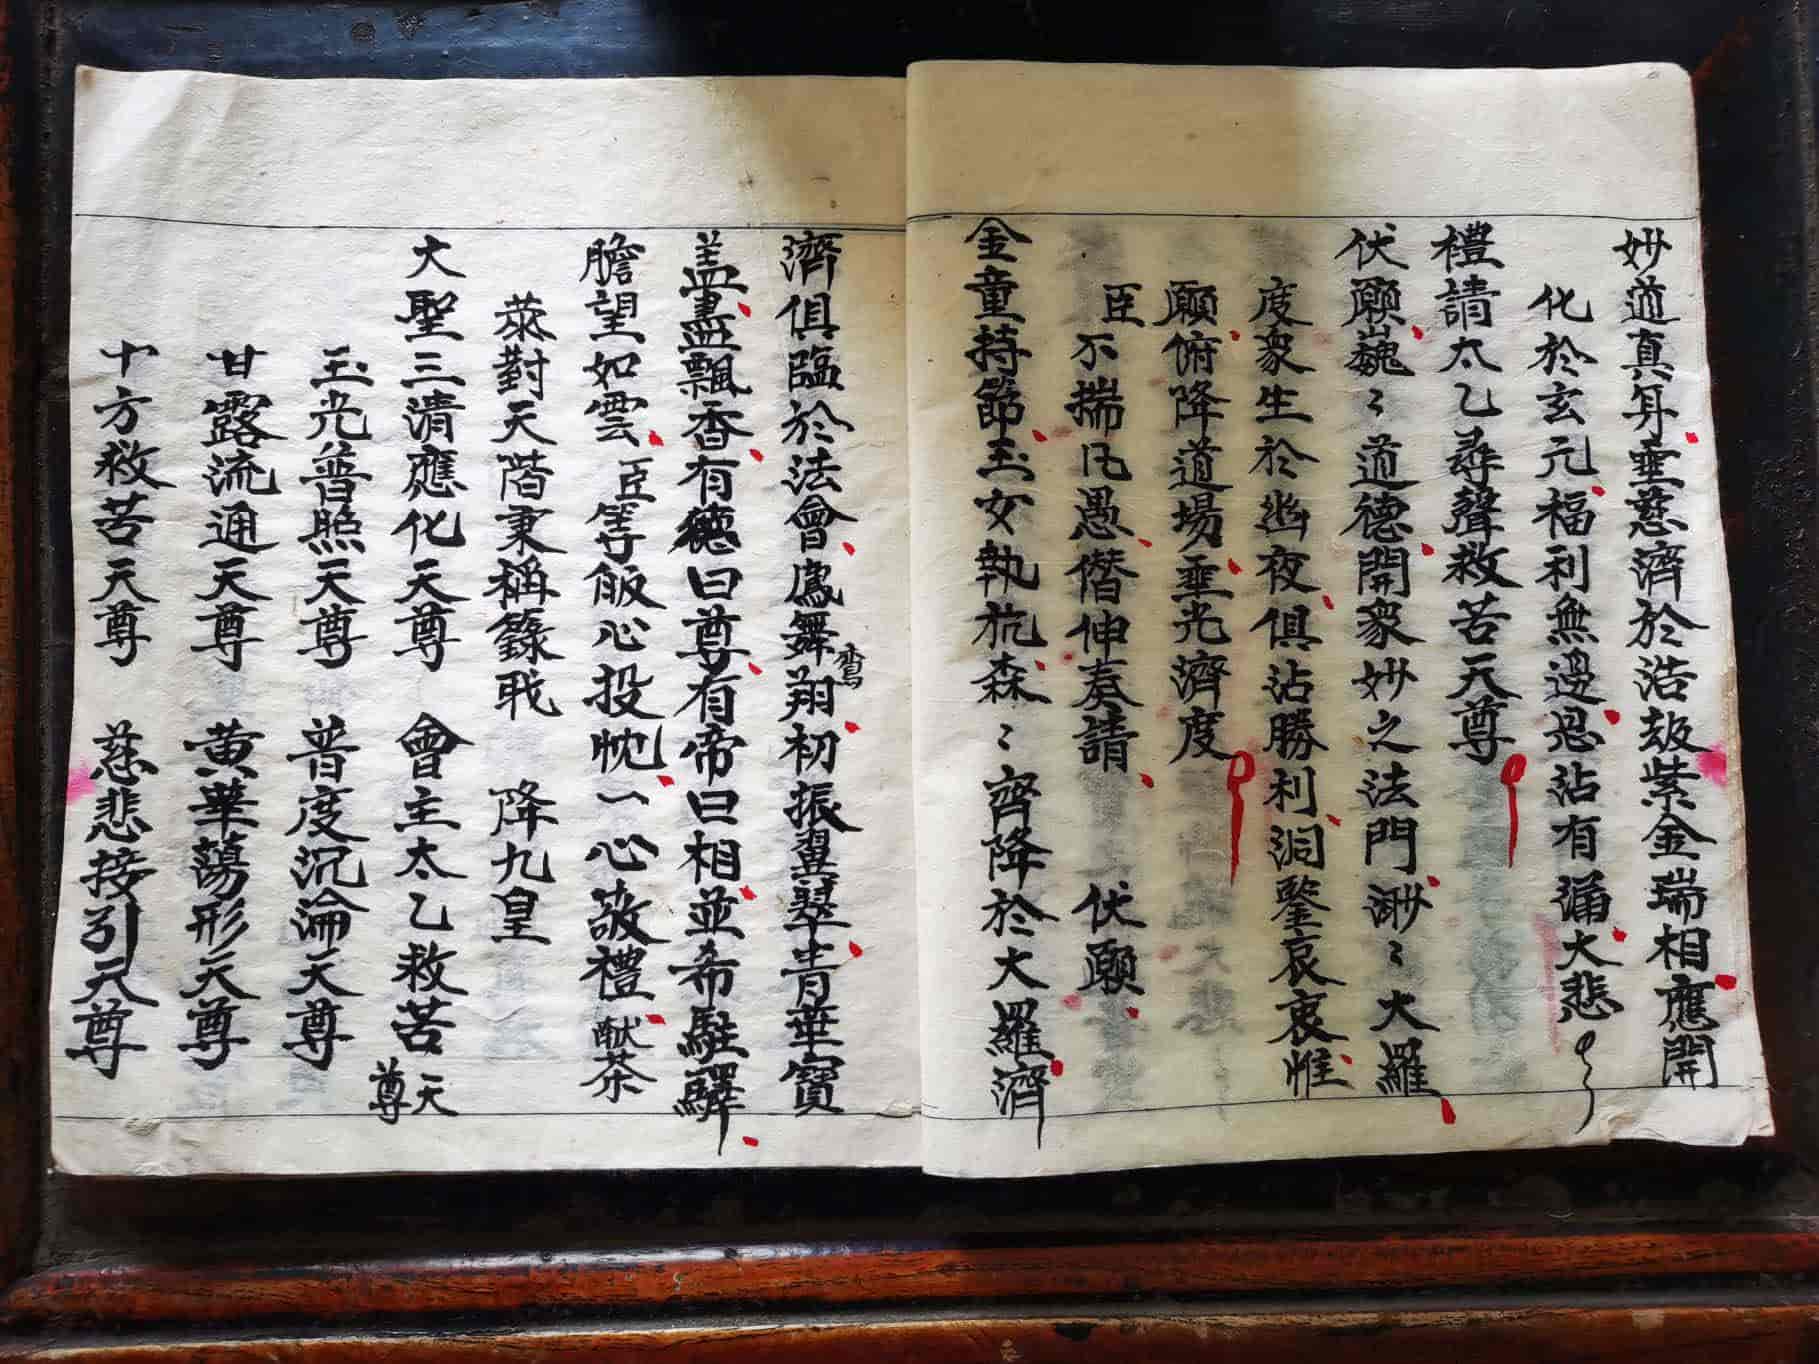 妙道真身垂慈濟於浩劫紫金瑞相應開
化於玄元福利無邊恩沾有漏大悲
禮請太乙尋聲救苦天尊
伏願巍〻道德開衆妙之法門渺〻大羅
度衆生於幽夜俱沾勝利洞鑒哀衷惟
願俯降道場垂光濟度
臣不揣凡愚僭伸奏請 伏願
金童持節玉女執杭森〻齊降於大羅濟
濟俱臨於法會鳳舞鸞翔初振翼翠青華寶
盖盡飄香有德曰尊有帝曰相並希駐驛
膽望如雲臣等皈心投忱一心敬禮献茶
恭對天階秉稱籙职 降九皇
大聖三清應化天尊 會主太乙救苦天尊
玉光普照天尊 普度沉淪天尊
甘露流通天尊 黄華蕩形天尊
十方救苦天尊 慈悲接引天尊